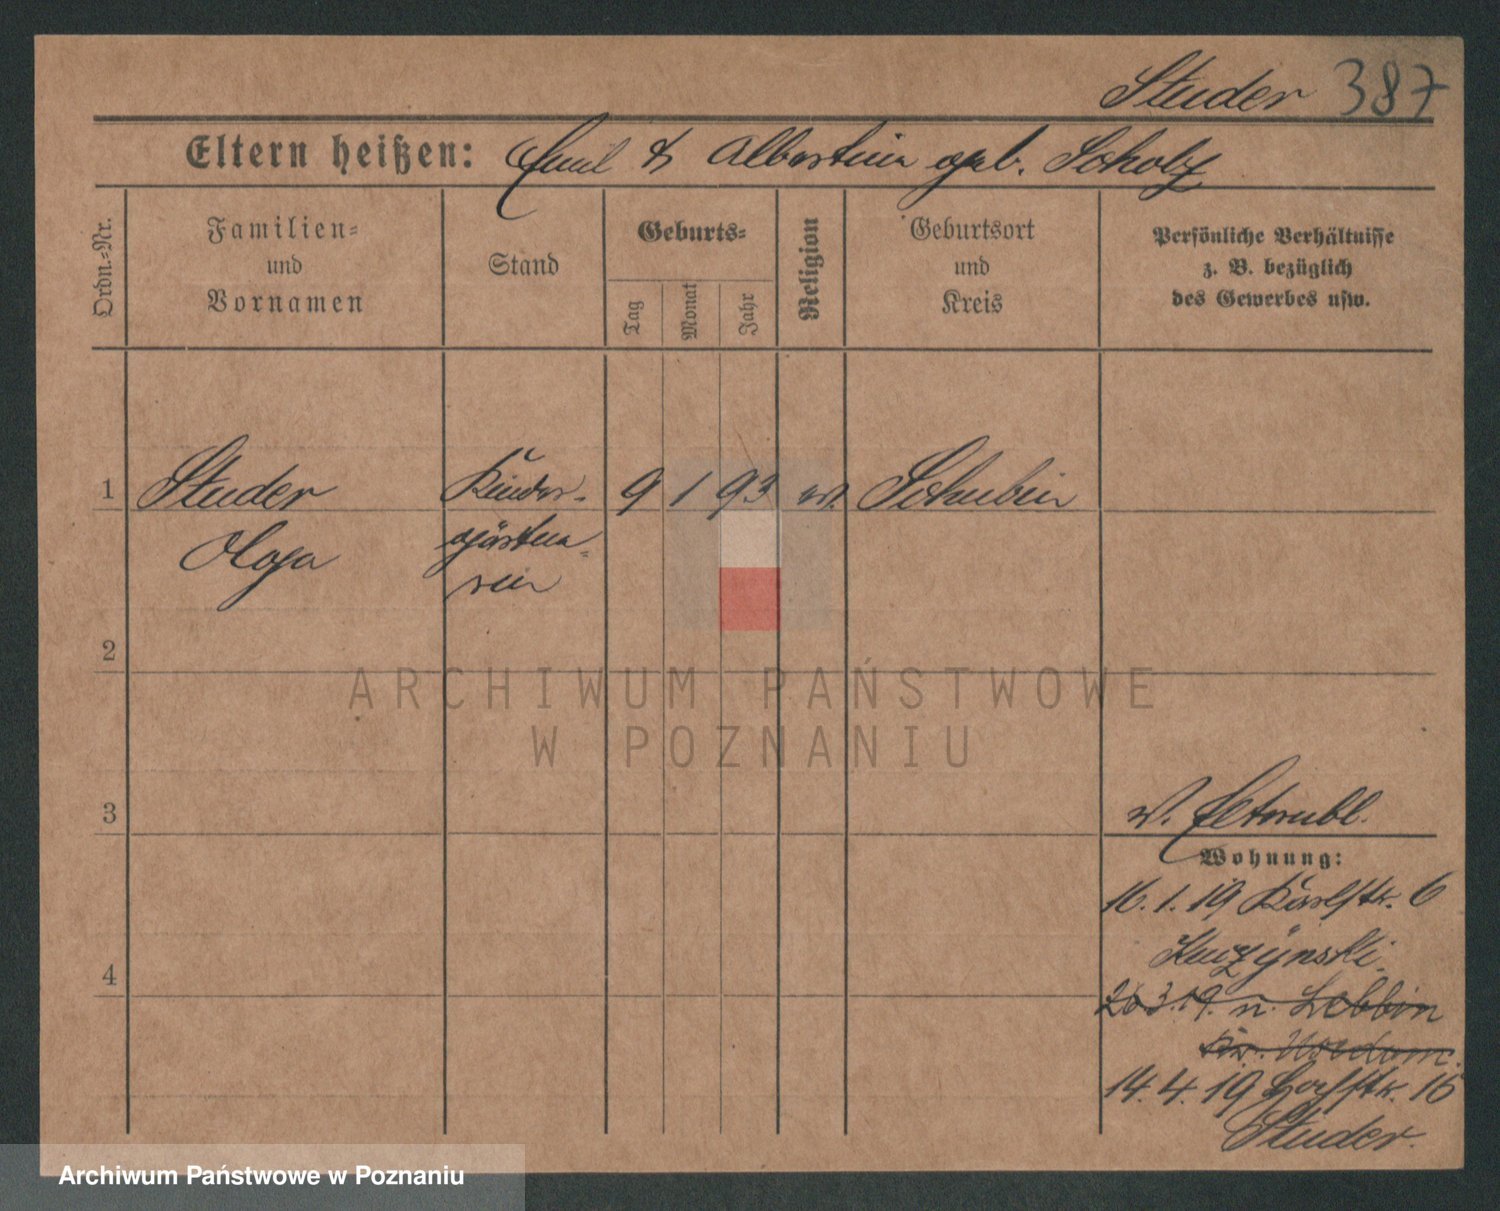 Studer 387
Eltern heißen: Emil & Albertine geb. Scholz
Ordn.-Nr.
Familien-
und
Vornamen
Stand
Geburts-
Tag
Monat
Jahr
Religion
Geburtsort
und
Kreis
Persönliche Verhältnisse
z. B. bezüglich
des Gewerbes usw.
1 Studer Kinder- 9 1 93 ev. Schubin
Olga gärtne-
rin
2
ARCHIWUM PAŃSTWOWE
W POZNANIU
3
Wohnung:
16.1.19 Karlstr. 6
4
26.3.19. n. Lebbin
Kr. Usedom.
14.4.19 16
Studer.
Archiwum Państwowe w Poznaniu